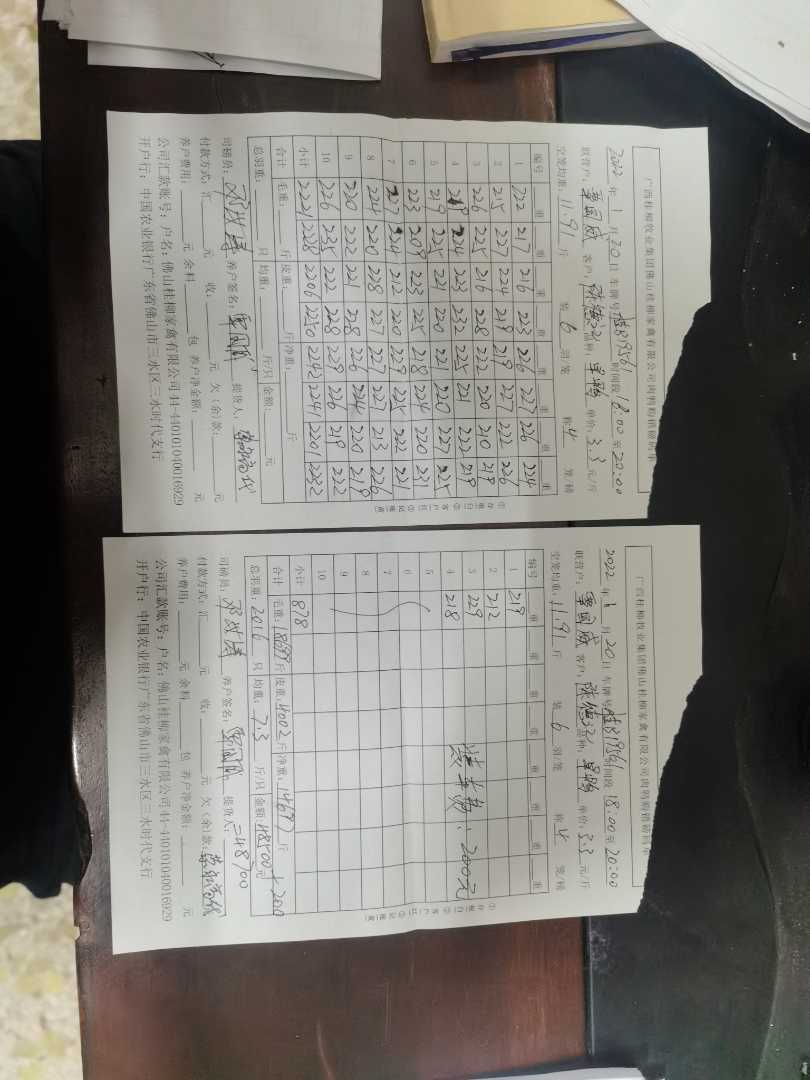 广西桂柳牧业集团佛山桂柳家禽有限公司肉鸭购销磅码单
2022 年 1 月 20 日 车牌号 桂B19561 时间段 18:00 至 20:00
联营户: 覃国威 客户: 品种: 单价: 3.3 元/斤
空笼均重: 11.91 斤 装 6 羽/笼 称 4 笼/磅
编号 重 重 重 重 重 重 重 重
1 222 217 216 223 226 227 226 224
2 215 227 224 219 219 227 222 226
3 226 225 216 228 222 220 210 219
4 218 224 223 232 225 221 222 218
5 219 225 221 220 221 220 227 225
6 223 209 223 225 218 224 220 231
7 227 224 212 220 229 225 222 221
8 224 220 228 227 227 227 213 226
9 220 222 221 218 226 224 220 218
10 226 235 222 228 229 226 219 222
小计 2221 2228 2206 2250 2242 2241 2201 2232
合计 毛重: 斤 皮重: 斤 净重: 斤
总羽重: 只 均重: 斤/只 金额: 元
司磅员: 养户签名: 覃国威 提货人:
付款方式: 汇 元 收: 元 欠(余)款: 元
养户费用: 元 余料 包 养户净金额: 元
公司汇款账号: 户名: 佛山桂柳家禽有限公司 44-440101040016929
开户行: 中国农业银行广东省佛山市三水区三水时代支行
广西桂柳牧业集团佛山桂柳家禽有限公司肉鸭购销磅码单
2022 年 1 月 20 日 车牌号 桂B19561 时间段 18:00 至 20:00
联营户: 覃国威 客户: 品种: 单价: 3.3 元/斤
空笼均重: 11.91 斤 装 6 羽/笼 称 4 笼/磅
编号 重 重 重 重 重 重 重 重
1 219
2 212
3 229
4 218 装车费: 200元
5
6
7
8
9
10
小计 878
合计 毛重: 18699 斤 皮重: 4002 斤 净重: 14697 斤
总羽重: 2016 只 均重: 7.3 斤/只 金额: 48500 元 +200
=48700
司磅员: 养户签名: 覃国威 提货人:
付款方式: 汇 元 收: 元 欠(余)款:
养户费用: 元 余料 包 养户净金额: 元
公司汇款账号: 户名: 佛山桂柳家禽有限公司 44-440101040016929
开户行: 中国农业银行广东省佛山市三水区三水时代支行